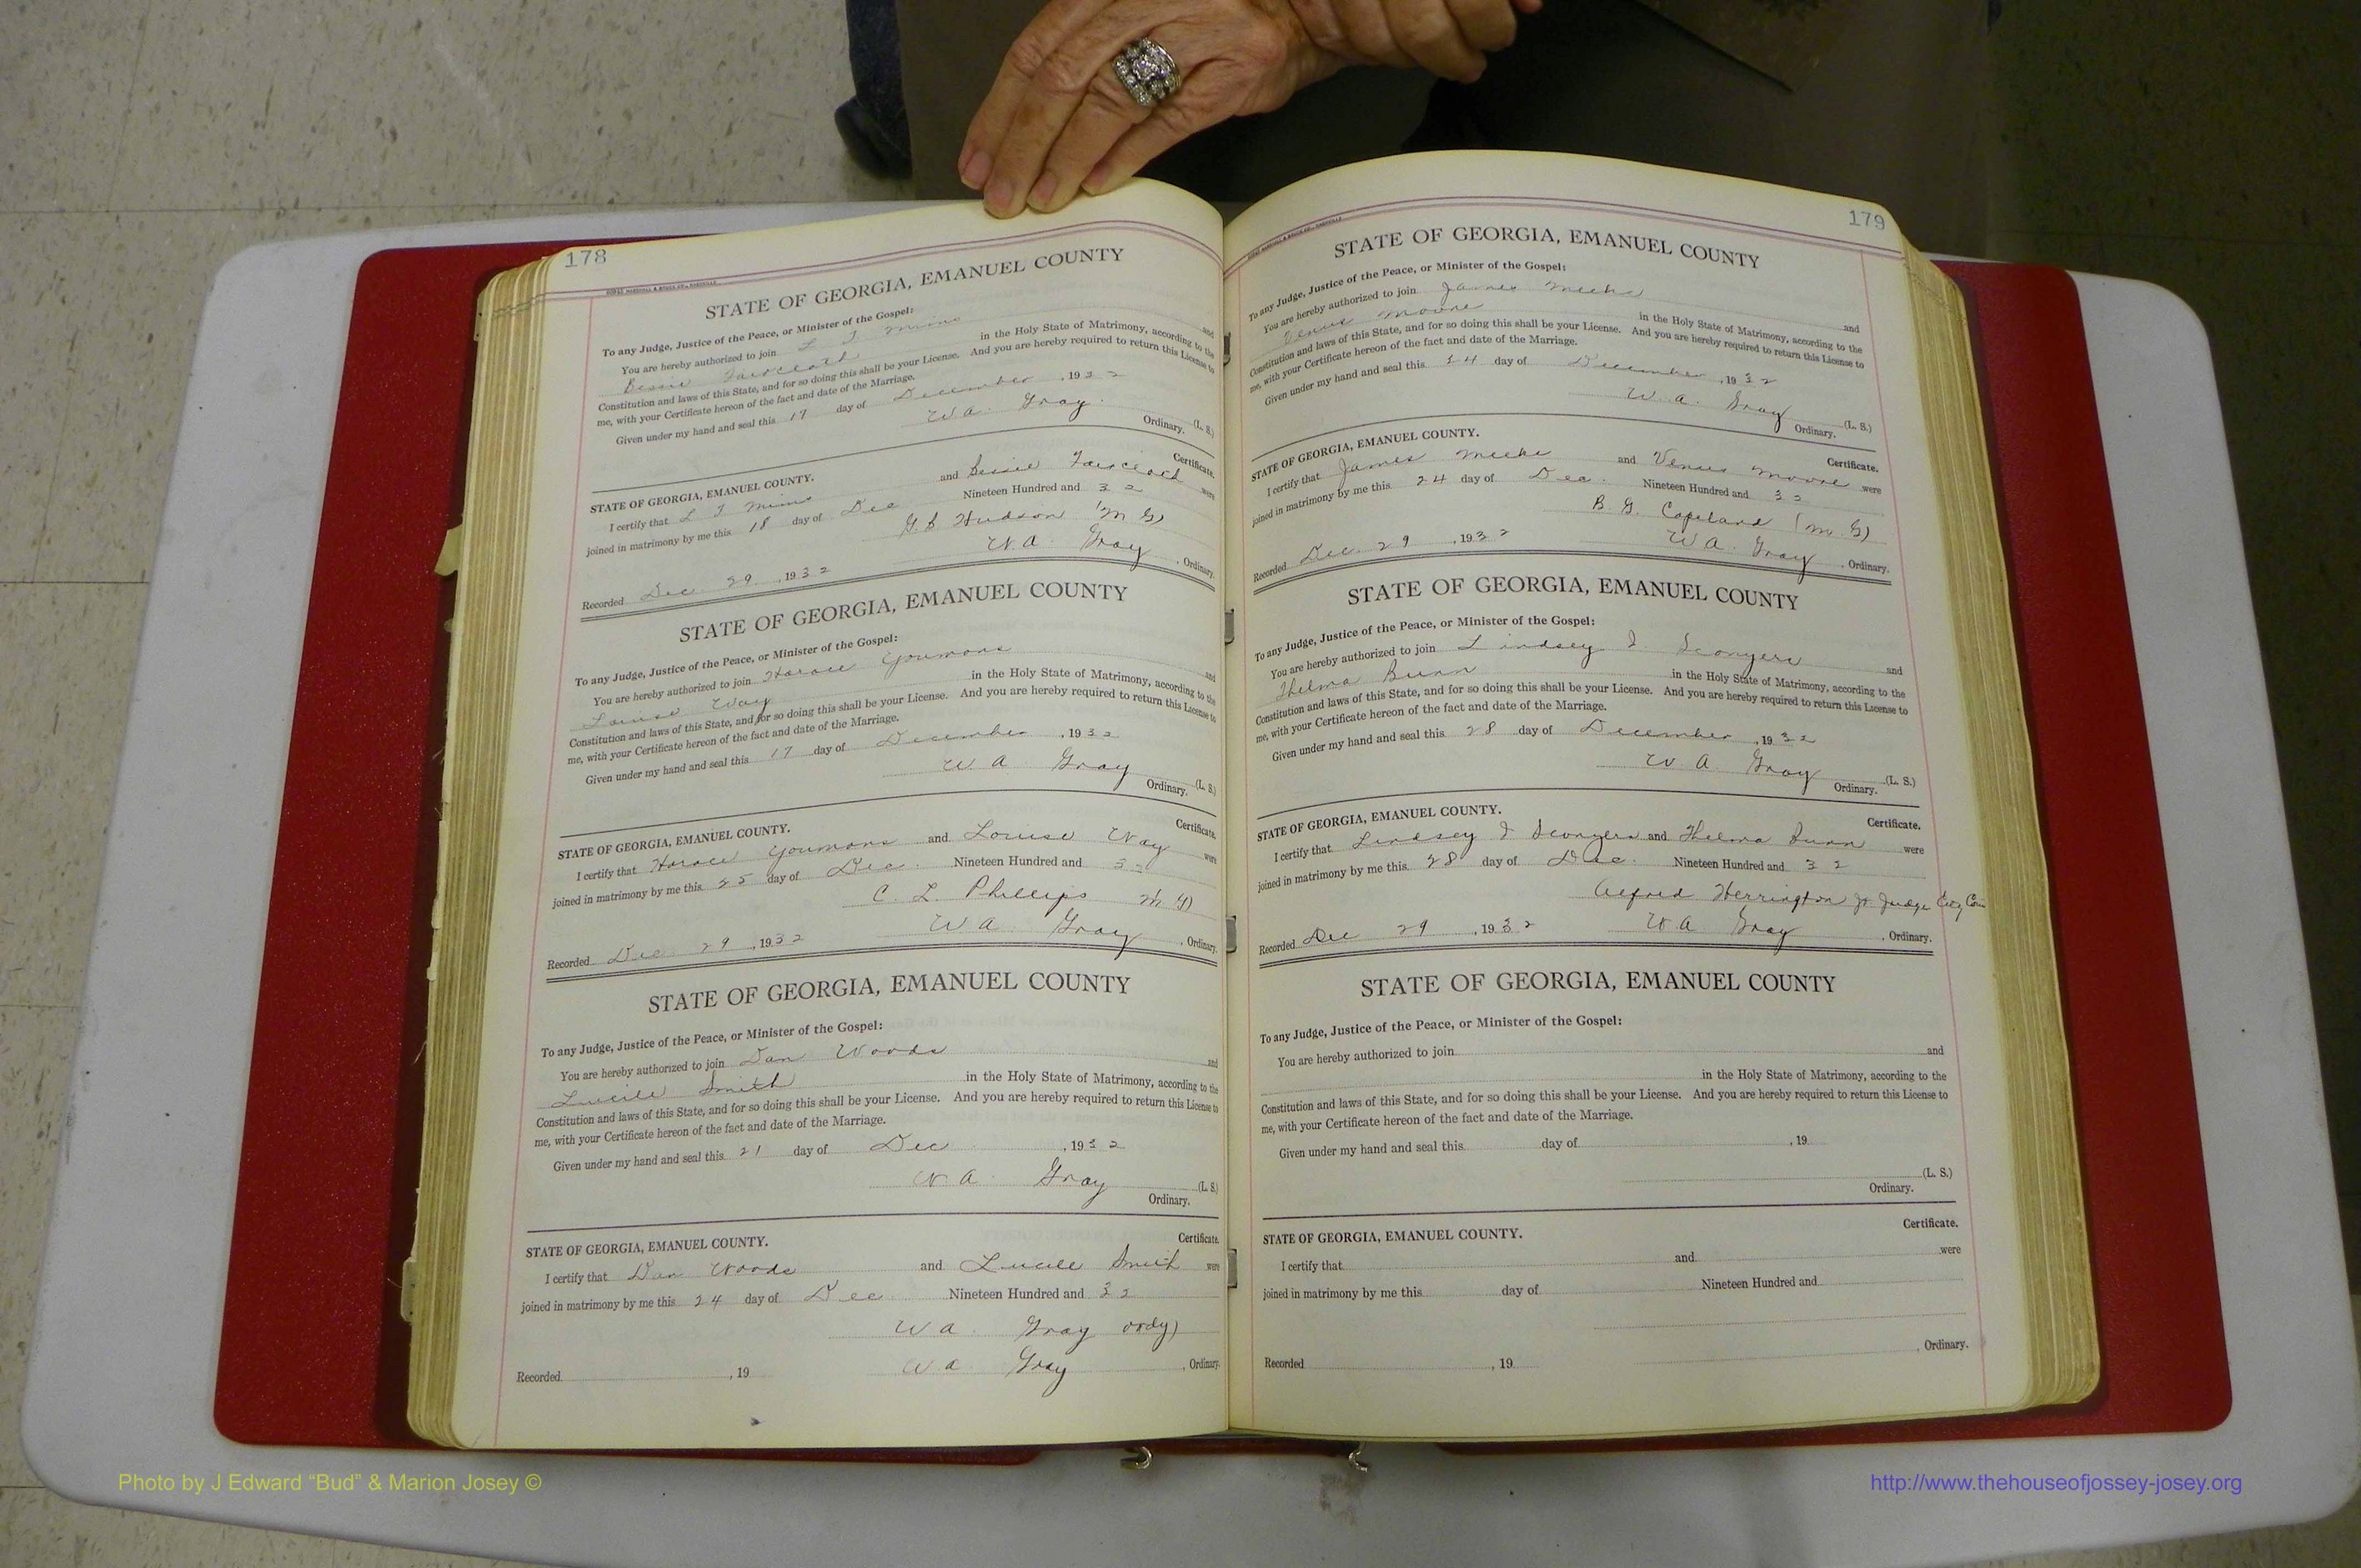 178
STATE OF GEORGIA, EMANUEL COUNTY
To any Judge, Justice of the Peace, or Minister of the Gospel:
You are hereby authorized to join L J Mims and
Bessie Faircloth in the Holy State of Matrimony, according to the
Constitution and laws of this State, and for so doing this shall be your License. And you are hereby required to return this License to
me, with your Certificate hereon of the fact and date of the Marriage.
Given under my hand and seal this 17 day of December, 1932
W. A. Gray (L. S.)
Ordinary.
STATE OF GEORGIA, EMANUEL COUNTY. Certificate.
I certify that L J Mims and Bessie Faircloth were
joined in matrimony by me this 18 day of Dec Nineteen Hundred and 32
Hudson (M G)
Recorded Dec. 29, 1932 W. A. Gray, Ordinary.
STATE OF GEORGIA, EMANUEL COUNTY
To any Judge, Justice of the Peace, or Minister of the Gospel:
You are hereby authorized to join Horace Youmans and
Louise Way in the Holy State of Matrimony, according to the
Constitution and laws of this State, and for so doing this shall be your License. And you are hereby required to return this License to
me, with your Certificate hereon of the fact and date of the Marriage.
Given under my hand and seal this 17 day of December, 1932
W A Gray (L. S.)
Ordinary.
STATE OF GEORGIA, EMANUEL COUNTY. Certificate.
I certify that Horace Youmans and Louise Way were
joined in matrimony by me this 25 day of Dec. Nineteen Hundred and 32
C. L. Phillips M G)
Recorded Dec. 29, 1932 W A Gray, Ordinary.
STATE OF GEORGIA, EMANUEL COUNTY
To any Judge, Justice of the Peace, or Minister of the Gospel:
You are hereby authorized to join Dan Woods and
Lucile Smith in the Holy State of Matrimony, according to the
Constitution and laws of this State, and for so doing this shall be your License. And you are hereby required to return this License to
me, with your Certificate hereon of the fact and date of the Marriage.
Given under my hand and seal this 21 day of Dec, 1932
W. A. Gray (L. S.)
Ordinary.
STATE OF GEORGIA, EMANUEL COUNTY. Certificate.
I certify that Dan Woods and Lucile Smith were
joined in matrimony by me this 24 day of Dec. Nineteen Hundred and 32
W A. Gray ordy)
Recorded, 19 W A Gray, Ordinary.
179
STATE OF GEORGIA, EMANUEL COUNTY
To any Judge, Justice of the Peace, or Minister of the Gospel:
You are hereby authorized to join James and
Venus Moore in the Holy State of Matrimony, according to the
Constitution and laws of this State, and for so doing this shall be your License. And you are hereby required to return this License to
me, with your Certificate hereon of the fact and date of the Marriage.
Given under my hand and seal this 24 day of December, 1932
W. A. Gray (L. S.)
Ordinary.
STATE OF GEORGIA, EMANUEL COUNTY. Certificate.
I certify that James and Venus Moore were
joined in matrimony by me this 24 day of Dec. Nineteen Hundred and 32
B. G. Copeland (M. G)
Recorded Dec. 29, 1932 W A. Gray, Ordinary.
STATE OF GEORGIA, EMANUEL COUNTY
To any Judge, Justice of the Peace, or Minister of the Gospel:
You are hereby authorized to join Lindsey J. Scongers and
Thelma Bunn in the Holy State of Matrimony, according to the
Constitution and laws of this State, and for so doing this shall be your License. And you are hereby required to return this License to
me, with your Certificate hereon of the fact and date of the Marriage.
Given under my hand and seal this 28 day of December, 1932
W. A. Gray (L. S.)
Ordinary.
STATE OF GEORGIA, EMANUEL COUNTY. Certificate.
I certify that Lindsey J Scongers and Thelma Bunn were
joined in matrimony by me this 28 day of Dec. Nineteen Hundred and 32
Alfred Herrington Jr. Judge City Cou
Recorded Dec 29, 1932 W A Gray, Ordinary.
STATE OF GEORGIA, EMANUEL COUNTY
To any Judge, Justice of the Peace, or Minister of the Gospel:
You are hereby authorized to join and
in the Holy State of Matrimony, according to the
Constitution and laws of this State, and for so doing this shall be your License. And you are hereby required to return this License to
me, with your Certificate hereon of the fact and date of the Marriage.
Given under my hand and seal this day of, 19
(L. S.)
Ordinary.
STATE OF GEORGIA, EMANUEL COUNTY. Certificate.
I certify that and were
joined in matrimony by me this day of Nineteen Hundred and
Recorded, 19, Ordinary.
Photo by J Edward “Bud” & Marion Josey ©
http://www.thehouseofjossey-josey.org